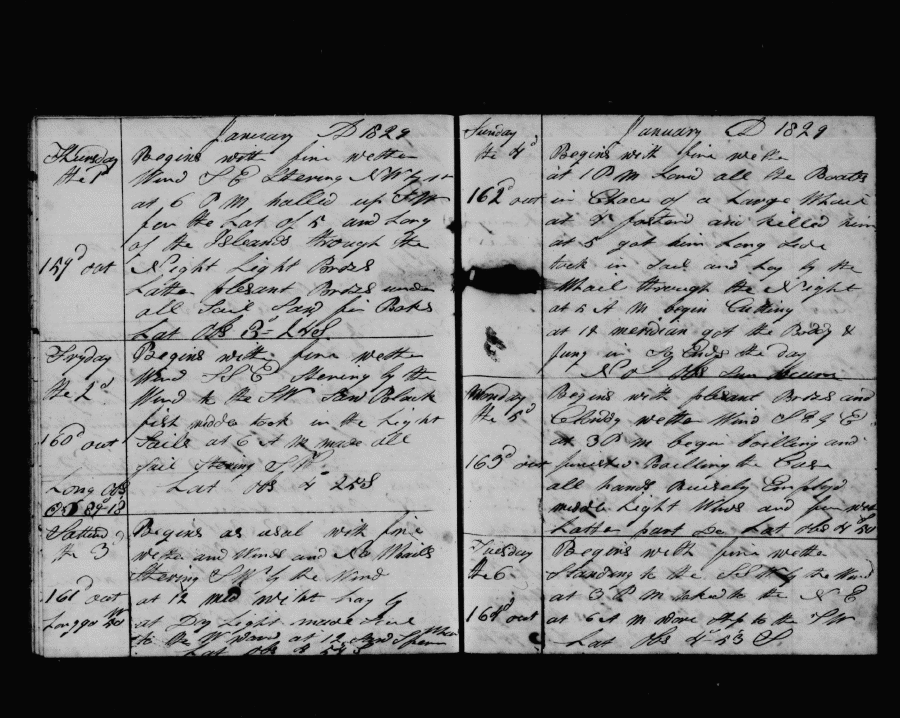 January AD 1829
Thursday
the 1st
159d out
Begins with fine wether
Wind S E Stering N W by W
at 6 P M halled up S W
for the Lat of 5 and Long
of the Isleands through the
Night Light Brezes
Latter plesant Brezes under
all Sail
Lat Obs
Fryday
the 2d
160d out
Long Obs
89-18
Begins with fine wether
Wind S S E Stering by the
Wind to the S W Sand Black
fish middle took in the Light
Sails at 6 A M made all
sail Stering S W
Lat Obs 4 25 S
Satturd
the 3
161d out
Begins as usal with fine
wether and Winds and No Whails
Stering S W by the Wind
at 12 mid night Lay by
at Day Light made Sail
to the W ward at 12
Lat Obs
January AD 1829
Sunday
the 4d
162d out
Begins with fine wether
at 1 P M Lowd all the Boats
in Chace of a Large Whail
at 4 fastend and killed him
at 5 got him Long Side
took in Sail and Lay by the
Whail through the Night
at 5 A M begin Cutting
at 12 meridian got the Body &
Jung in So Ends the day
No Obs Sun
Monday
the 5d
163d out
Begins with plesant Brezes and
Cloudy wether Wind S E & E
at 3 P M begun Boilling and
finished Boilling the Case
all hands Buisely Employd
middle Light Winds and fine weth
Latter part Do Lat Obs 4 50
Tuesday
the 6
164d out
Begins with fine wether
Standing to the S S W by the Wind
at 3 P M tacked to the N E
at 6 A M wore Ship to the S W
Lat Obs 4-53 S